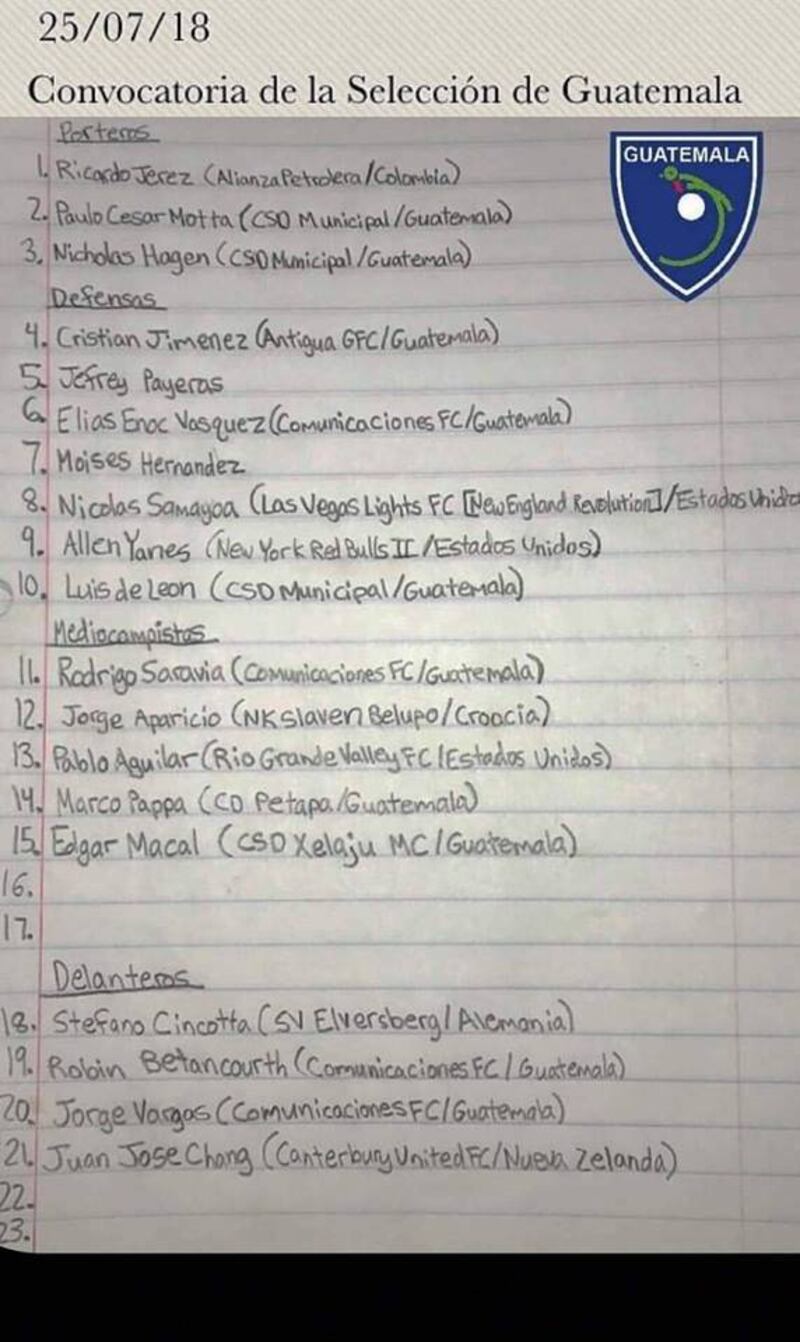 25/07/18
Convocatoria de la Selección de Guatemala
Porteros
GUATEMALA
1. Ricardo Jerez (Alianza Petrolera/Colombia)
2. Paulo Cesar Motta (CSD Municipal/Guatemala)
3. Nicholas Hagen (CSD Municipal/Guatemala)
Defensas
4. Cristian Jimenez (Antigua GFC/Guatemala)
5. Jefrey Payeras
6. Elias Enoc Vasquez (Comunicaciones FC/Guatemala)
7. Moises Hernandez
8. Nicolas Samayoa (Las Vegas Lights FC [New England Revolution]/Estados Unidos
9. Allen Yanes (New York Red Bulls II/Estados Unidos)
10. Luis de Leon (CSD Municipal/Guatemala)
Mediocampistas
11. Rodrigo Saravia (Comunicaciones FC/Guatemala)
12. Jorge Aparicio (NK Slaven Belupo/Croacia)
13. Pablo Aguilar (Rio Grande Valley FC/Estados Unidos)
14. Marco Pappa (CD Petapa/Guatemala)
15. Edgar Macal (CSD Xelaju MC/Guatemala)
16.
17.
Delanteros
18. Stefano Cincotta (SV Elversberg/Alemania)
19. Robin Betancourth (Comunicaciones FC/Guatemala)
20. Jorge Vargas (Comunicaciones FC/Guatemala)
21. Juan Jose Chang (Canterbury United FC/Nueva Zelanda)
22.
23.